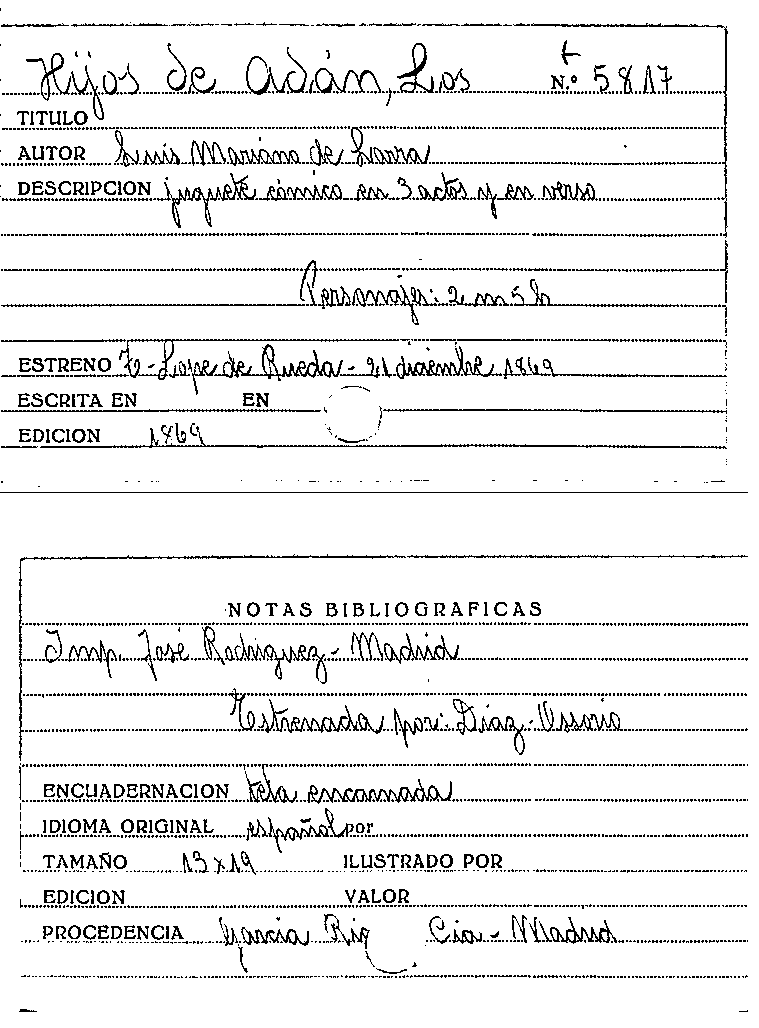 Hijos de Adán, Los N.º 5817
TITULO
AUTOR Luis Mariano de Larra
DESCRIPCION juguete cómico en 3 actos y en verso
Personajes: 2 m 5 h
ESTRENO T- Lope de Rueda - 21 diciembre 1869
ESCRITA EN EN
EDICION 1869
NOTAS BIBLIOGRAFICAS
Imp. José Rodriguez - Madrid
Estrenada por: Diaz - Ossorio
ENCUADERNACION tela encarnada
IDIOMA ORIGINAL español por
TAMAÑO 13 x 19 ILUSTRADO POR
EDICION VALOR
PROCEDENCIA Garcia Rig Cia - Madrid